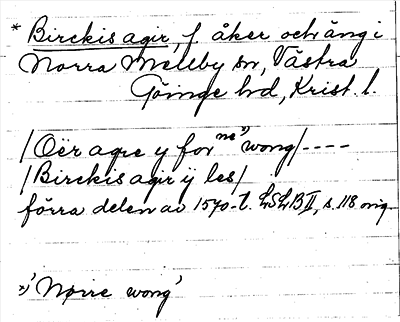 * Birckis agir, f åker och äng i
Norra Mellby sn, Västra
Göinge hd, Krist. l.
/Oër agre y for ne*) wong/----
/Birckis agir ÿ les/
förra delen av 1570-t. LSLB II, s. 118 orig.
*) 'Nørre wong'